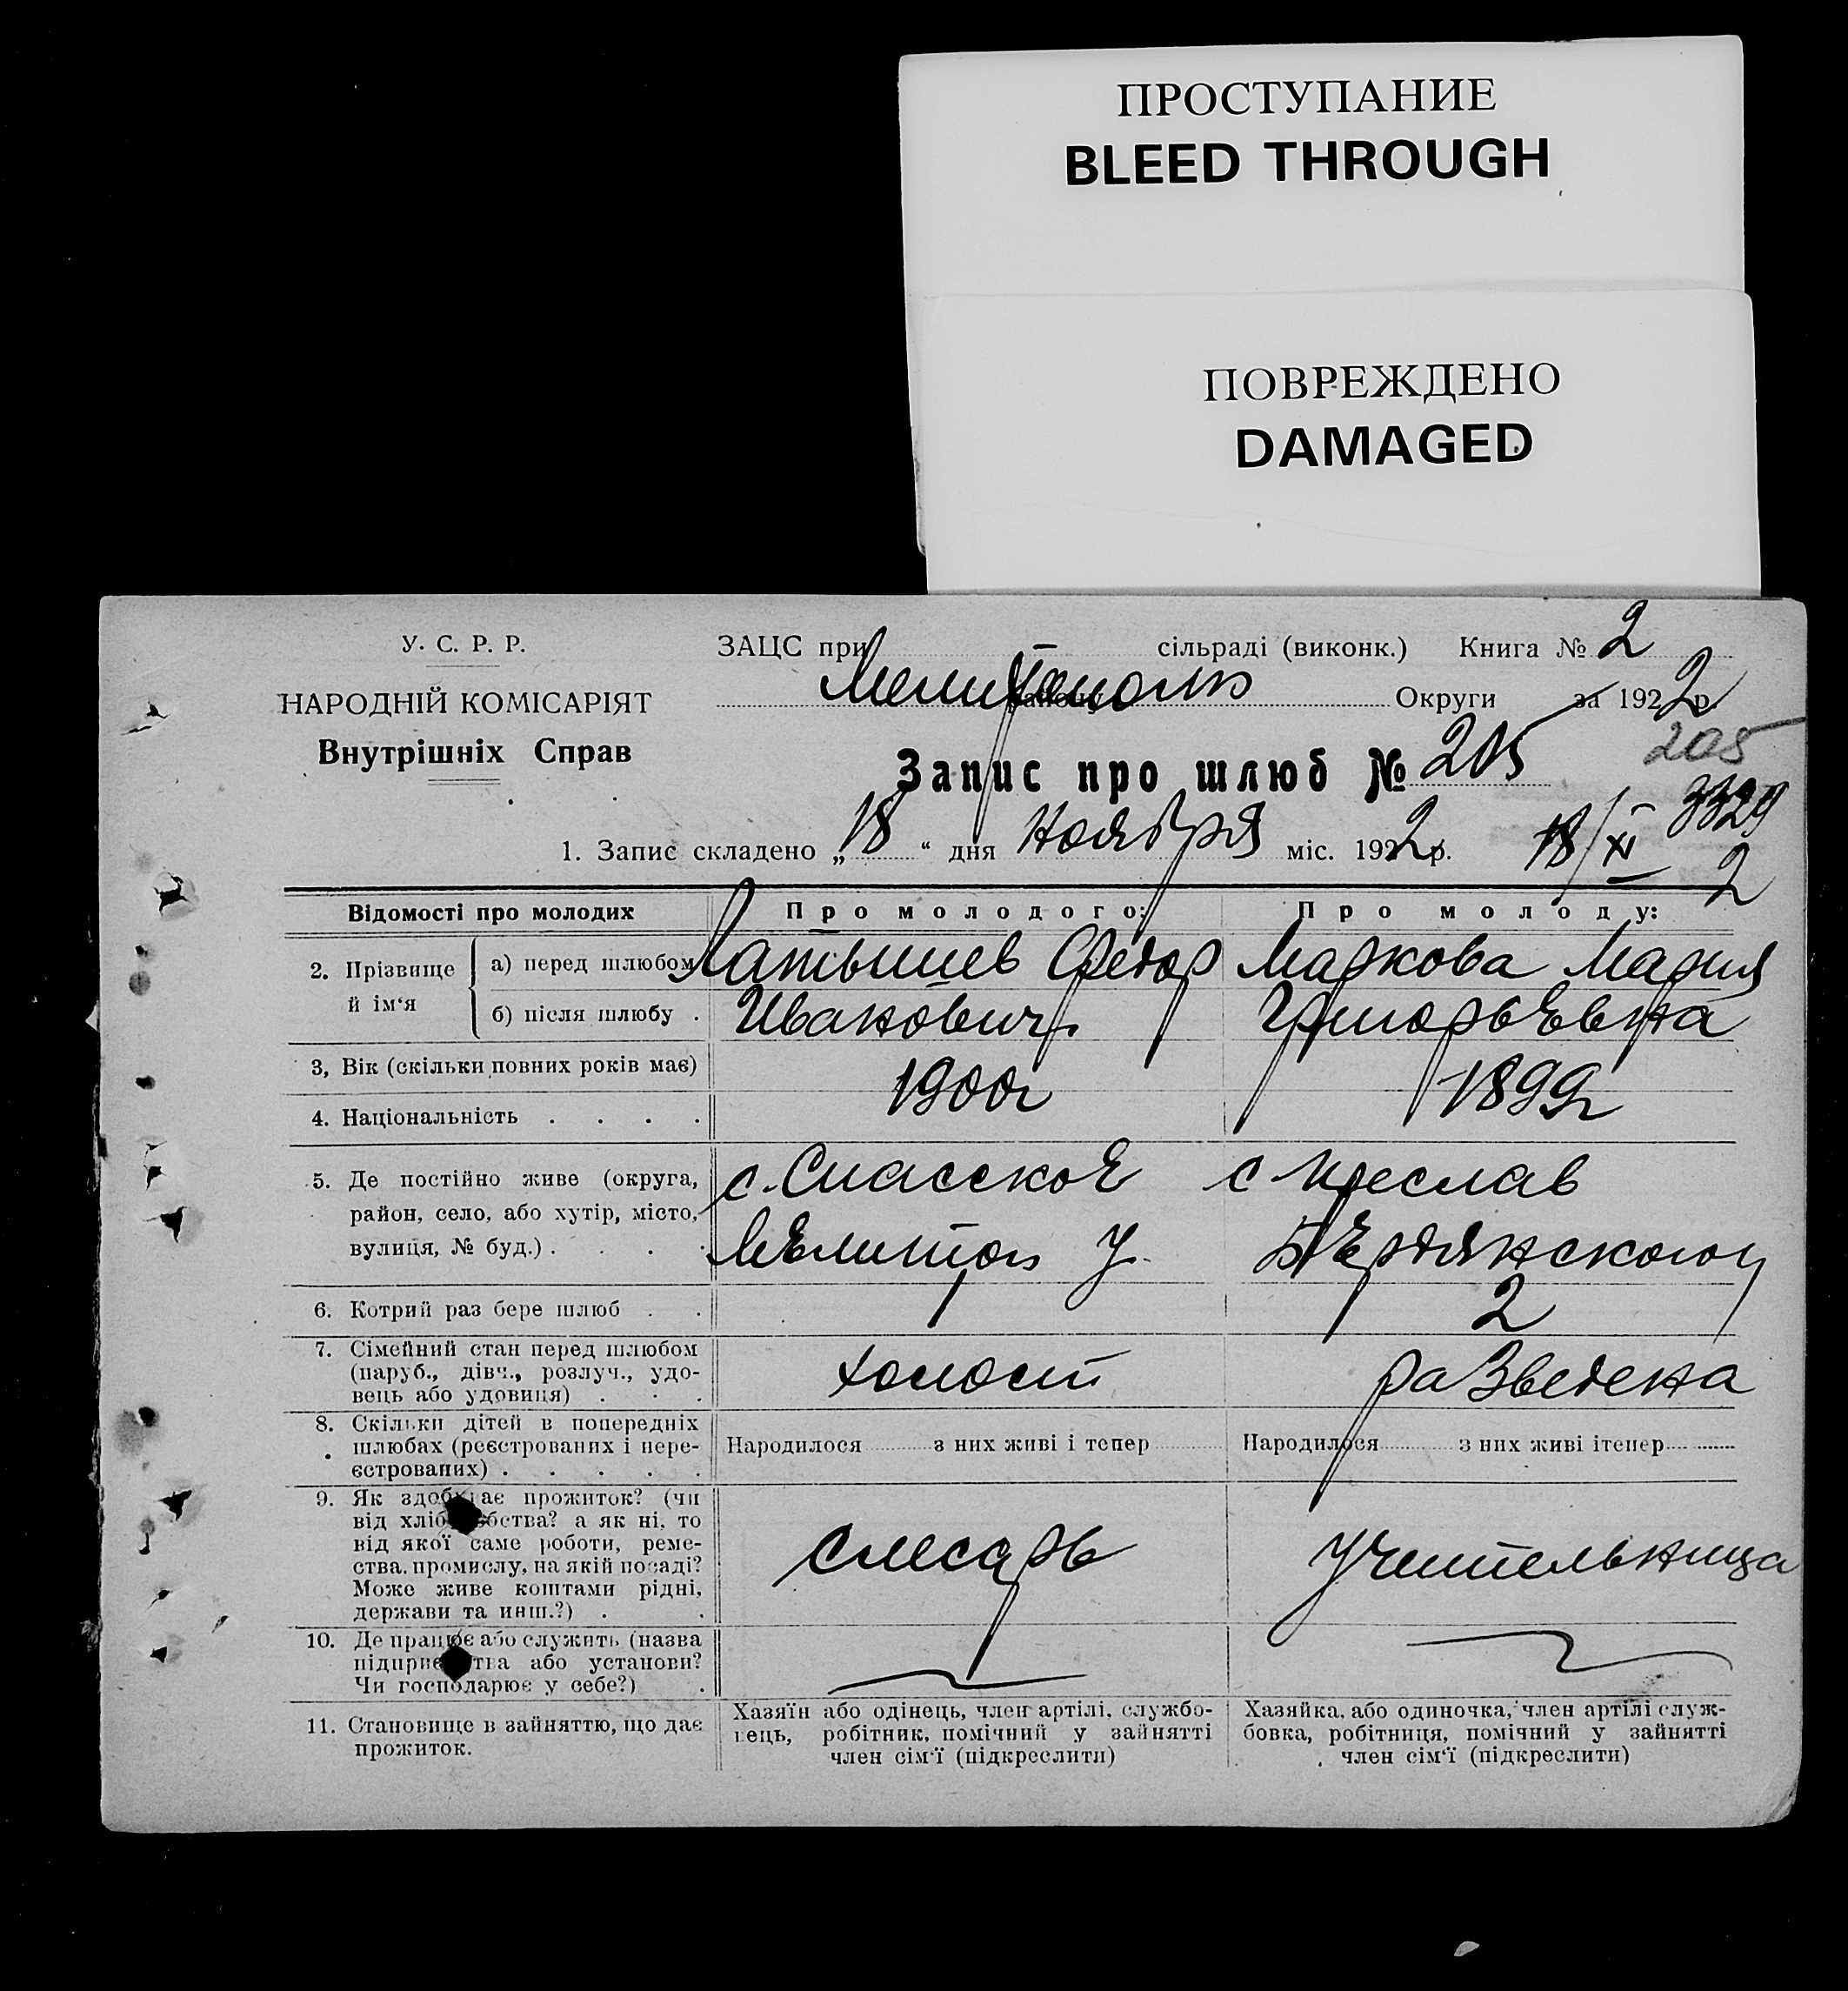 ПРОСТУПАНИЕ
BLEED THROUGH
ПОВРЕЖДЕНО
DAMAGED
У. С. Р. Р.
НАРОДНІЙ КОМІСАРІЯТ
Внутрішніх Справ
ЗАЦС при сільраді (виконк.) Книга № 2
Мелитополь району Округи за 1922 р.
Запис про шлюб № 205
205
1. Запис складено „18“ дня Ноября міс. 1922 р. 18/XI 2
3329
Відомості про молодих Про молодого: Про молоду:
2. Прізвище й ім‘я
а) перед шлюбом Латышев Федор Маркова Мария
б) після шлюбу . Иванович Григорьевна
3, Вік (скільки повних років має) 1900г 1899г
4. Національність . . . .
5. Де постійно живе (округа, с. Спасское с Преслав
район, село, або хутір, місто,
вулиця, № буд.) . . . . Мелитоп У. Бердянского у
6. Котрий раз бере шлюб . . 1 2
7. Сімейний стан перед шлюбом
(паруб., дівч., розлуч., удо- холост разведена
вець або удовиця) . . .
8. Скільки дітей в попередніх
шлюбах (реєстрованих і нере- Народилося з них живі і тепер Народилося з них живі ітепер
єстрованих) . . . . .
9. Як здобуває прожиток? (чи
від хліборобства? а як ні, то
від якої саме роботи, реме- слесарь учительница
ства, промислу, на якій посаді?
Може живе коштами рідні,
держави та инш.?) . .
10. Де працює або служить (назва
підприємства або установи?
Чи господарює у себе?) .
11. Становище в зайняттю, що дає
прожиток.
Хазяїн або одінець, член артілі, службо-
вець, робітник, помічний у зайнятті
член сім‘ї (підкреслити)
Хазяйка, або одиночка, член артілі служ-
бовка, робітниця, помічний у зайнятті
член сім‘ї (підкреслити)